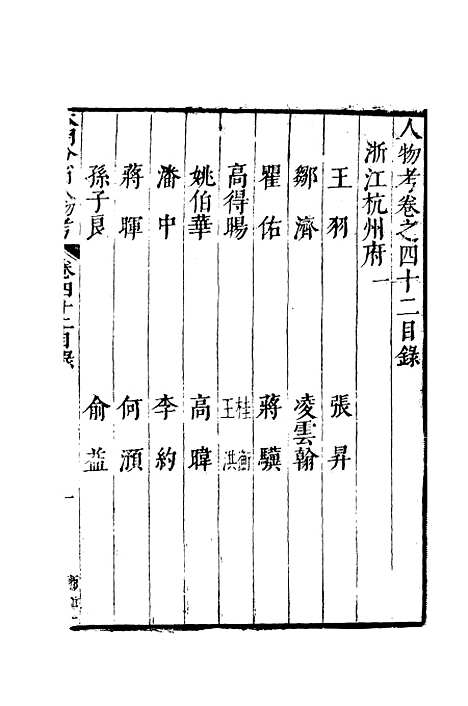 人物考卷之四十二目錄
浙江杭州府一
王羽 張昇
鄒濟 凌雲翰
瞿佑 蔣驥
高得暘 桂衡 王洪
姚伯華 高暐
潘中 李約
蔣暉 何澬
孫子良 俞益
人物考 卷四十二目錄 一